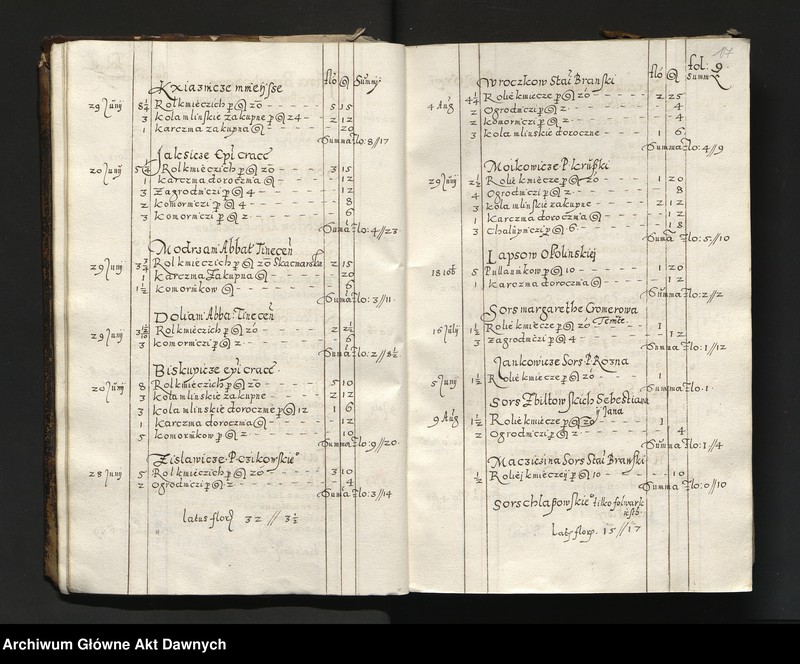 flo g Summy
Kxiaznicze mnieysse
29 Junij 8 1/4 Rol kmieczich p g 20 - 5 15
3 kola mlinskie zakupne p g 24 - 2 12
1 karczma zakupna g - 20
Summa flo: 8//17
Jalcsicze Epi cracc
20 Junij Rol kmieczich p g 20 - 3 15
1 karczma doroczna g - 12
3 Zagrodniczi p g 4 - 12
2 komorniczi p g 4 - 8
3 komorniczi p g 2 - 6
Summa flo: 4//23
Modrzani Abbat Tineceñ
29 Junij 3 3/4 Rol kmieczich p g 20 - 2 15
1 karczma zakupna g - 20
1 1/2 komornikow g - 6
Summa flo: 3//11
Doliani Abba: Tineceñ
29 Junij Rol kmieczich p g 20 - 2
3 komorniczi p g 2 - 6
Summa flo: 2//8 1/2
Biskupicze epi cracc
20 Junij 8 Rol kmieczich p g 20 - 5 10
3 kola mlinskie zakupne - 2 12
3 kola mlinskie doroczne p g 12 1 6
1 karczma doroczna g - 12
5 komornikow p g 2 - 10
Summa flo: 9//20
Zislawicze P. Czikowskie°
28 Junij 5 Rol kmieczich p g 20 - 3 10
2 ogrodniczi p g 2 - 4
Summa flo: 3//14
latus flor 32 // 3 1/2
17
flo g Summy
fol: 9
Wroczkow Stal Branski
4 Aug 4 1/4 Rolie kmiecze p g 20 - 2 25
2 Ogrodniczi p g 2 - 4
2 komorniczi p g 2 - 4
3 kola mlinskie doroczne - 1 6
Summa flo: 4//9
Moikowicze P. krupski
29 Junij 2 1/2 Rolie kmiecze p g 20 - 1 20
4 Ogrodniczi p g 2 - 8
3 kola mlinskie zakupne - 2 12
1 karczma doroczna g - 12
3 Chalupniczi p g 6 - 18
Summa flo: 5//10
Lapsow Opolinskiej
18 5 Pullanikow p g 10 - 1 20
1 karczma doroczna g - 12
Summa flo: 2//2
Sors margarethe Cromerowa
16 Julij 1 1/2 Rolie kmiecze p g 20 - 1
3 zagrodniczi p g 4 - 12
Summa flo: 1//12
Jankowicze Sors P. Rozna
5 Junij 1 1/2 Rolie kmiecze p g 20 - 1
Summa flo: 1
Sors Zbiltowskich Sebestiana
y Jana
9 Aug 1 1/2 Rolie kmiecze p g 20 - 1
2 Ogrodniczi p g 2 - 4
Summa flo: 1//4
Macziczina Sors Stal Branski
1/2 Roliej kmieczej p g 10 - 10
Summa flo: 0//10
Sors chlapowskie° tilko folwark
iest
Lats flor. 15//17
Archiwum Główne Akt Dawnych